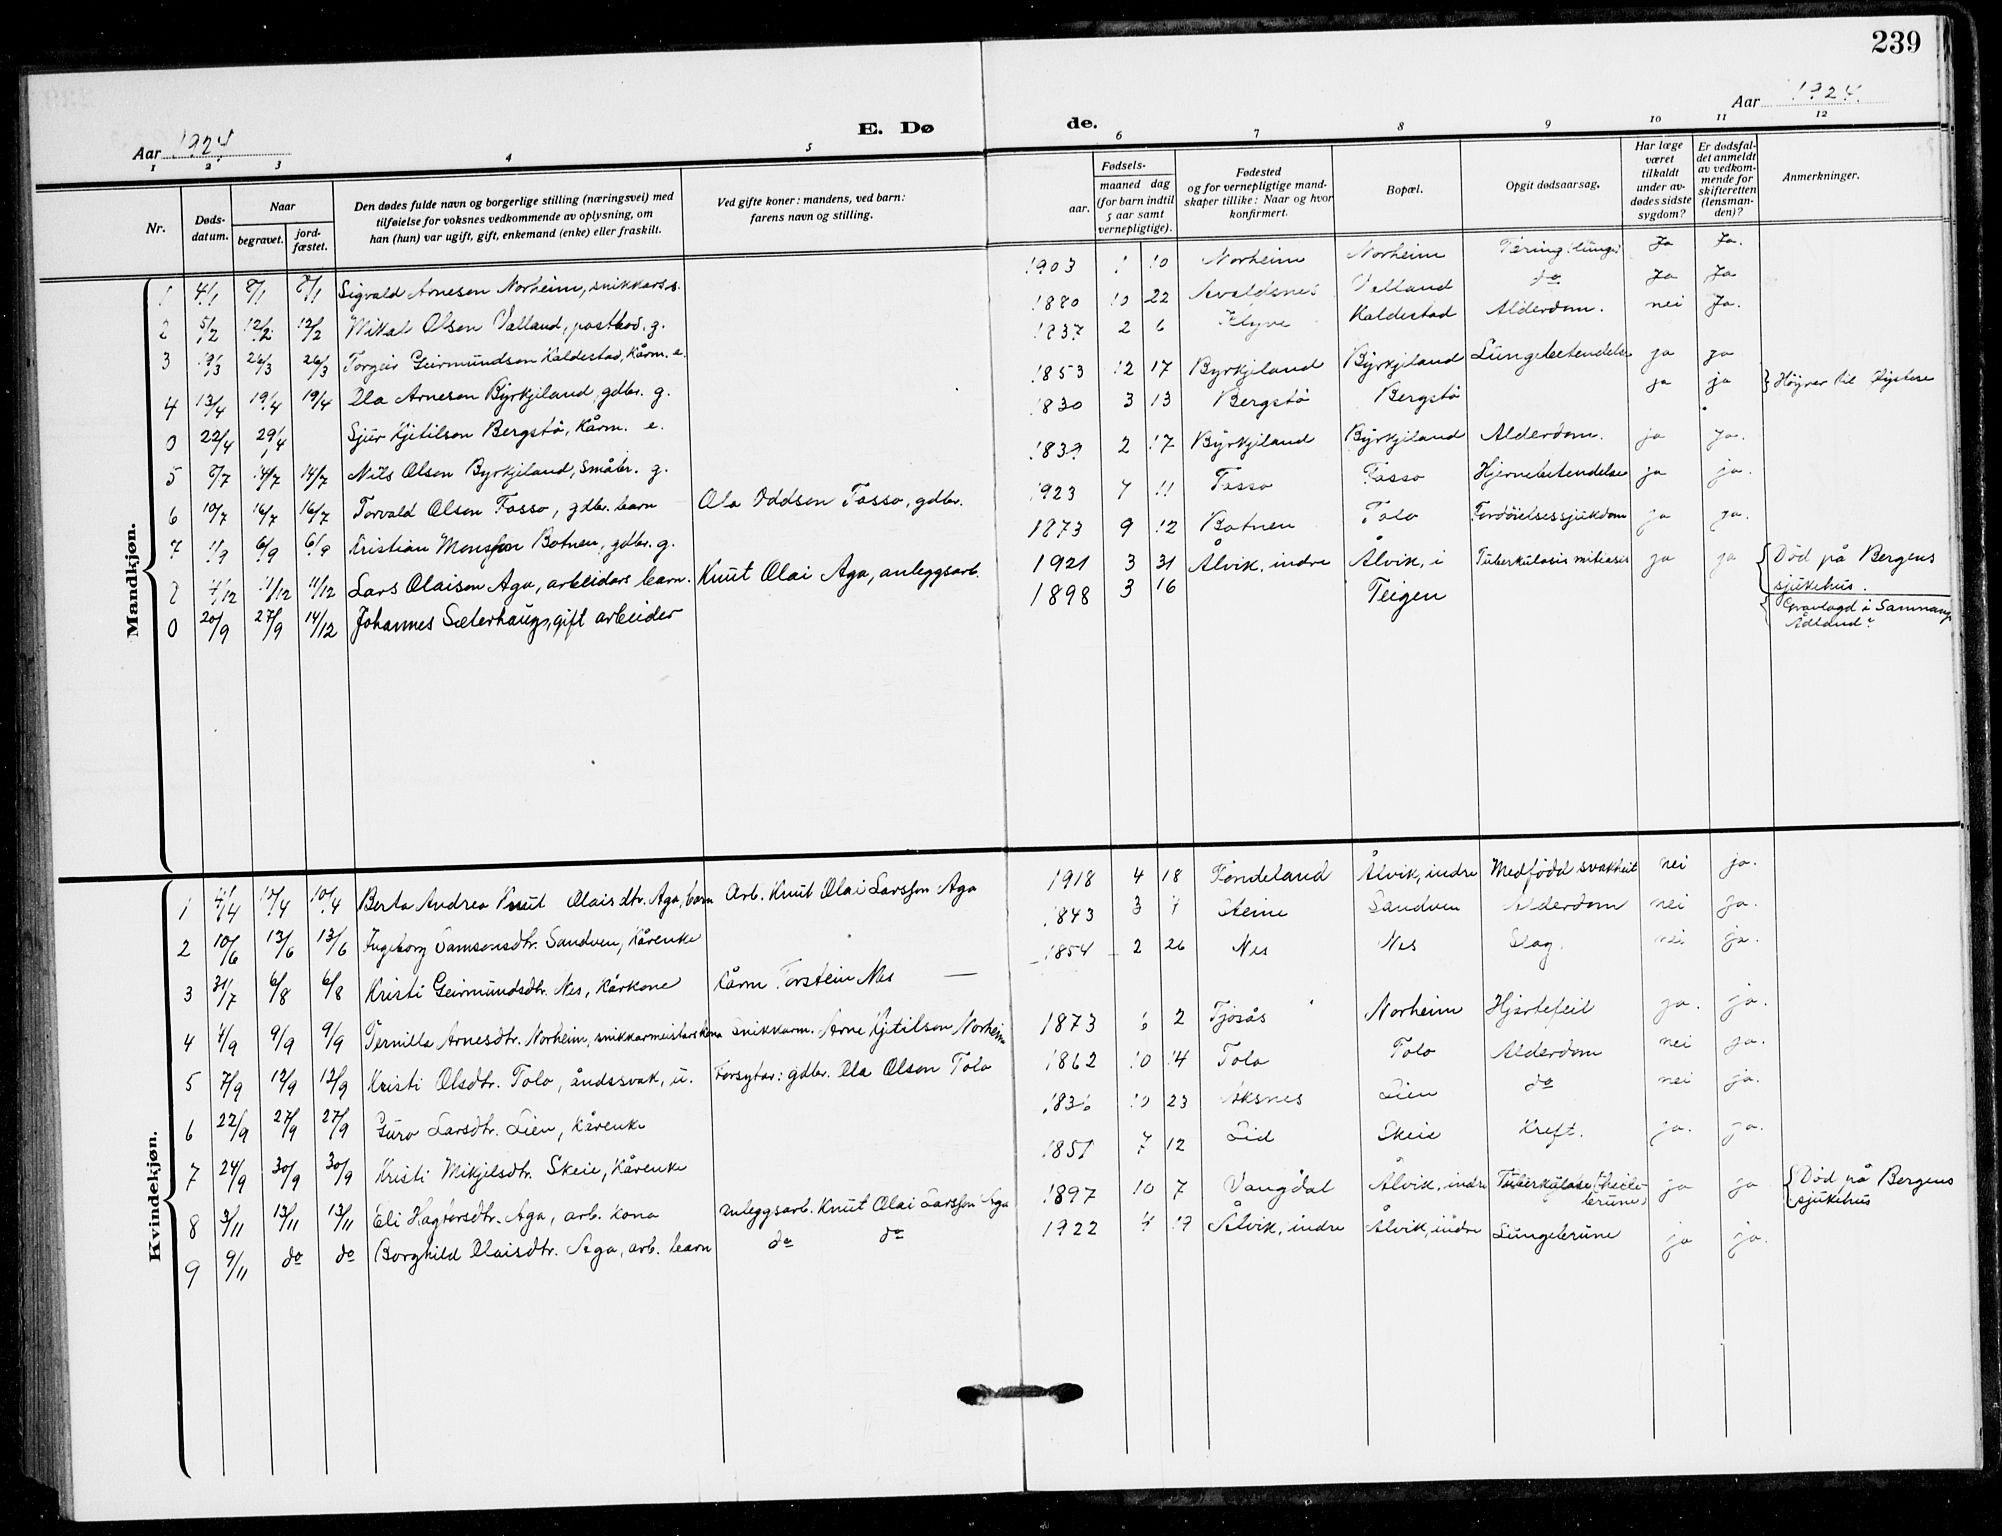 239
Aar 1924
E. Døde.
Aar 1924.
1 2 3 4 5 6 7 8 9 10 11 12
Nr.
Døds-
datum.
Naar
begravet.
jord-
fæstet.
Den dødes fulde navn og borgerlige stilling (næringsvei) med
tilføielse for voksnes vedkommende av oplysning, om
han (hun) var ugift, gift, enkemand (enke) eller fraskilt.
Ved gifte koner: mandens, ved barn:
farens navn og stilling.
Fødsels-
aar.
maaned dag
(for barn indtil
5 aar samt
vernepligtige).
Fødested
og for vernepligtige mand-
skaper tillike: Naar og hvor
konfirmert.
Bopæl.
Opgit dødsaarsag.
Har læge
været
tilkaldt
under av-
dødes sidste
sygdom?
Er dødsfal-
det anmeldt
av vedkom-
mende for
skifteretten
(lensman-
den)?
Anmerkninger.
Mandkjøn.
1 4/1 8/1 8/1 Sigvald Arnesen Norheim, snikkars s. 1903 1 10 Norheim Norheim Tæring (lunge) Ja Ja.
2 5/2 12/2 12/2 Mikal Olsen Valland, postbod. g. 1880 10 22 Avaldsnes Valland do Ja Ja
3 19/3 26/3 26/3 Torgeir Geirmundson Kaldestad, Kårm. e. 1837 2 6 Flyve Kaldestad Alderdom. nei Ja.
4 13/4 19/4 19/4 Ola Arnesen Byrkjiland, gdbr. g. 1853 12 17 Byrkjiland Byrkjiland Lungebetendelse ja ja
0 22/4 29/4 Sjur Kjetilson Bergstø, Kårm. e. 1830 3 13 Bergstø Bergstø ja ja
5 8/7 14/7 14/7 Nils Olson Byrkjiland, småbr. g. 1839 2 17 Byrkjiland Byrkjiland Alderdom. ja ja.
6 10/7 16/7 16/7 Torvald Olson Fosso, gdbr. barn Ola Oddsen Fosso, gdbr. 1923 7 11 Fosso Fosso Hjernebetendelse ja ja.
7 1/9 6/9 6/9 Kristian Monsson Botnen, gdbr. g. 1873 9 12 Botnen Tolo Fordøielsessjukdom ja ja.
8 4/12 11/12 11/12 Lars Olaison Aga, arbeidars barn. Knut Olai Aga, anleggsarb. 1921 3 31 Ålvik, indre Ålvik, i Tuberkulosis miliaris ja ja Død på Bergens
sjukehus.
0 20/9 27/9 14/12 Johannes Sæterhaug, gift arbeider 1898 3 16 Teigen Gravlagd i Samnanger
Ådland
Kvindekjøn.
1 4/4 10/4 10/4 Berta Andrea Knut Olaisdtr. Aga, barn Arb. Knut Olai Larsson Aga 1918 4 18 Fondeland Ålvik, indre Medfødd svakheit nei ja.
2 10/6 13/6 13/6 Ingeborg Samsonsdtr. Sandven, Kårenke 1843 3 4 Steine Sandven Alderdom nei ja.
3 31/7 6/8 6/8 Kristi Geirmundsdtr. Nes, Kårkone Kårm. Torstein Nes 1854 2 26 Nes Nes Slag. nei ja.
4 4/9 9/9 9/9 Pernilla Arnesdtr. Norheim, snikkarmeistars kona Snikkarm. Arne Kjetilson Norheim 1873 6 2 Tjosås Norheim Hjartefeil ja. ja.
5 7/9 12/9 12/9 Kristi Olsdtr. Tolo, åndssvak, u. Forsytar: gdbr. Ola Olson Tolo 1862 10 14 Tolo Tolo Alderdom nei ja.
6 22/9 27/9 27/9 Guro Larsdtr. Lien, Kårenke 1836 10 23 Aksnes Lien do nei ja.
7 24/9 30/9 30/9 Kristi Mikjelsdtr. Skeie, Kårenke 1851 7 12 Lid Skeie Kreft. ja. ja.
8 3/11 13/11 13/11 Eli Hagbarsdtr. Aga, arb. kona Anleggsarb. Knut Olai Larsson Aga 1897 10 7 Vangdal Ålvik, indre Tuberkulose ja ja Død på Bergens
sjukehus
9 9/11 do do Borghild Olaisdtr. Aga, arb. barn do do 1922 4 17 Ålvik, indre Ålvik, indre Lungebrune ja ja.